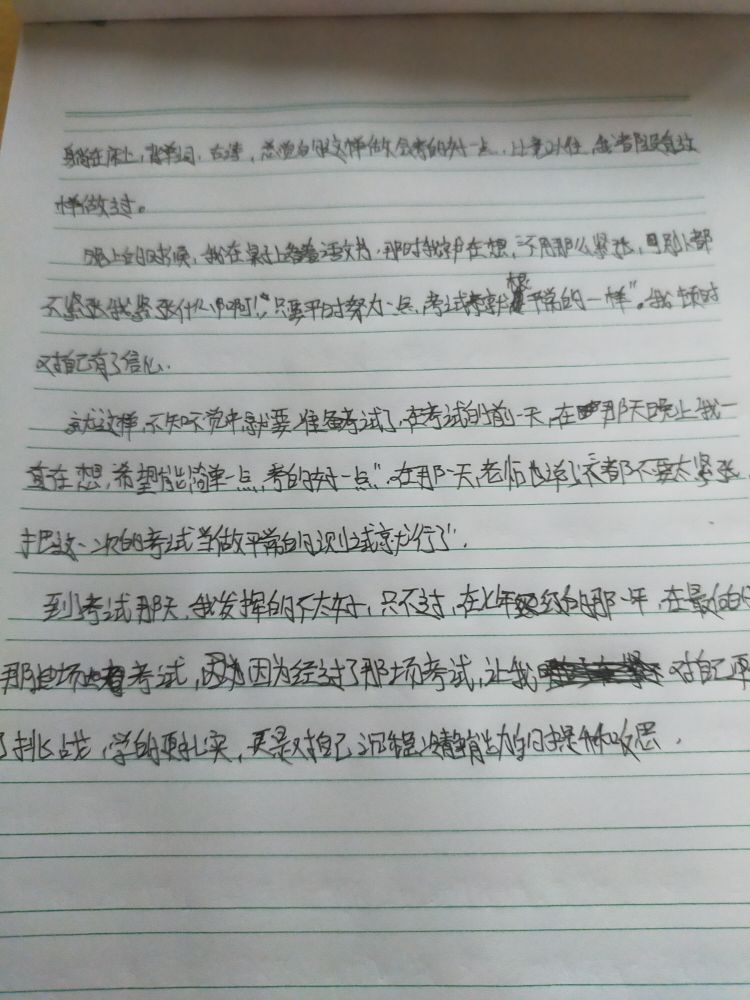 身躺在床上，背单词，古诗，总觉的这样做会考的好一点，比竟以往，我当没有这
样做过。
晚上的时候，我在桌上看着语文书，那时我就在想，“不用那么紧张，别人都
不紧张我紧张什么啊！”只要平时努力一点，考试就会跟平常的一样”。我顿时
对自己有了信心。
就这样，不知不觉中就要准备考试了，在考试的前一天，在那天晚上我一
直在想，希望能简单一点，考的好一点”。在那一天，老师也说了大家都不要太紧张，
把这一次的考试当做平常的测试就行了。
到考试那天，我发挥的不太好，只不过，在七年级的那一年，在最后的
那场考试，因为经过了那场考试，让我对自己
了挑战，学的更扎实，更是对自己沉稳冷静能力的提升和反思.